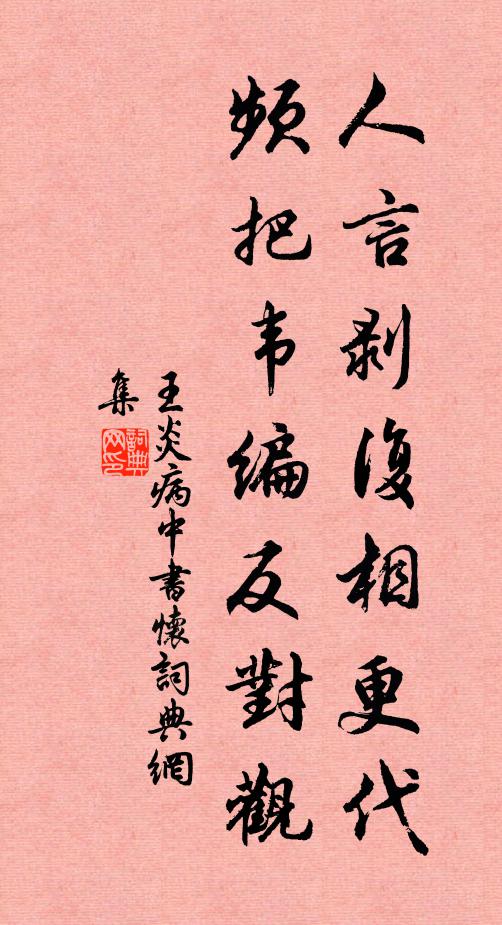 人言剥復相更代
頻把韦编反對觀
王炎病中書懷詞典網
集
詞典
网印